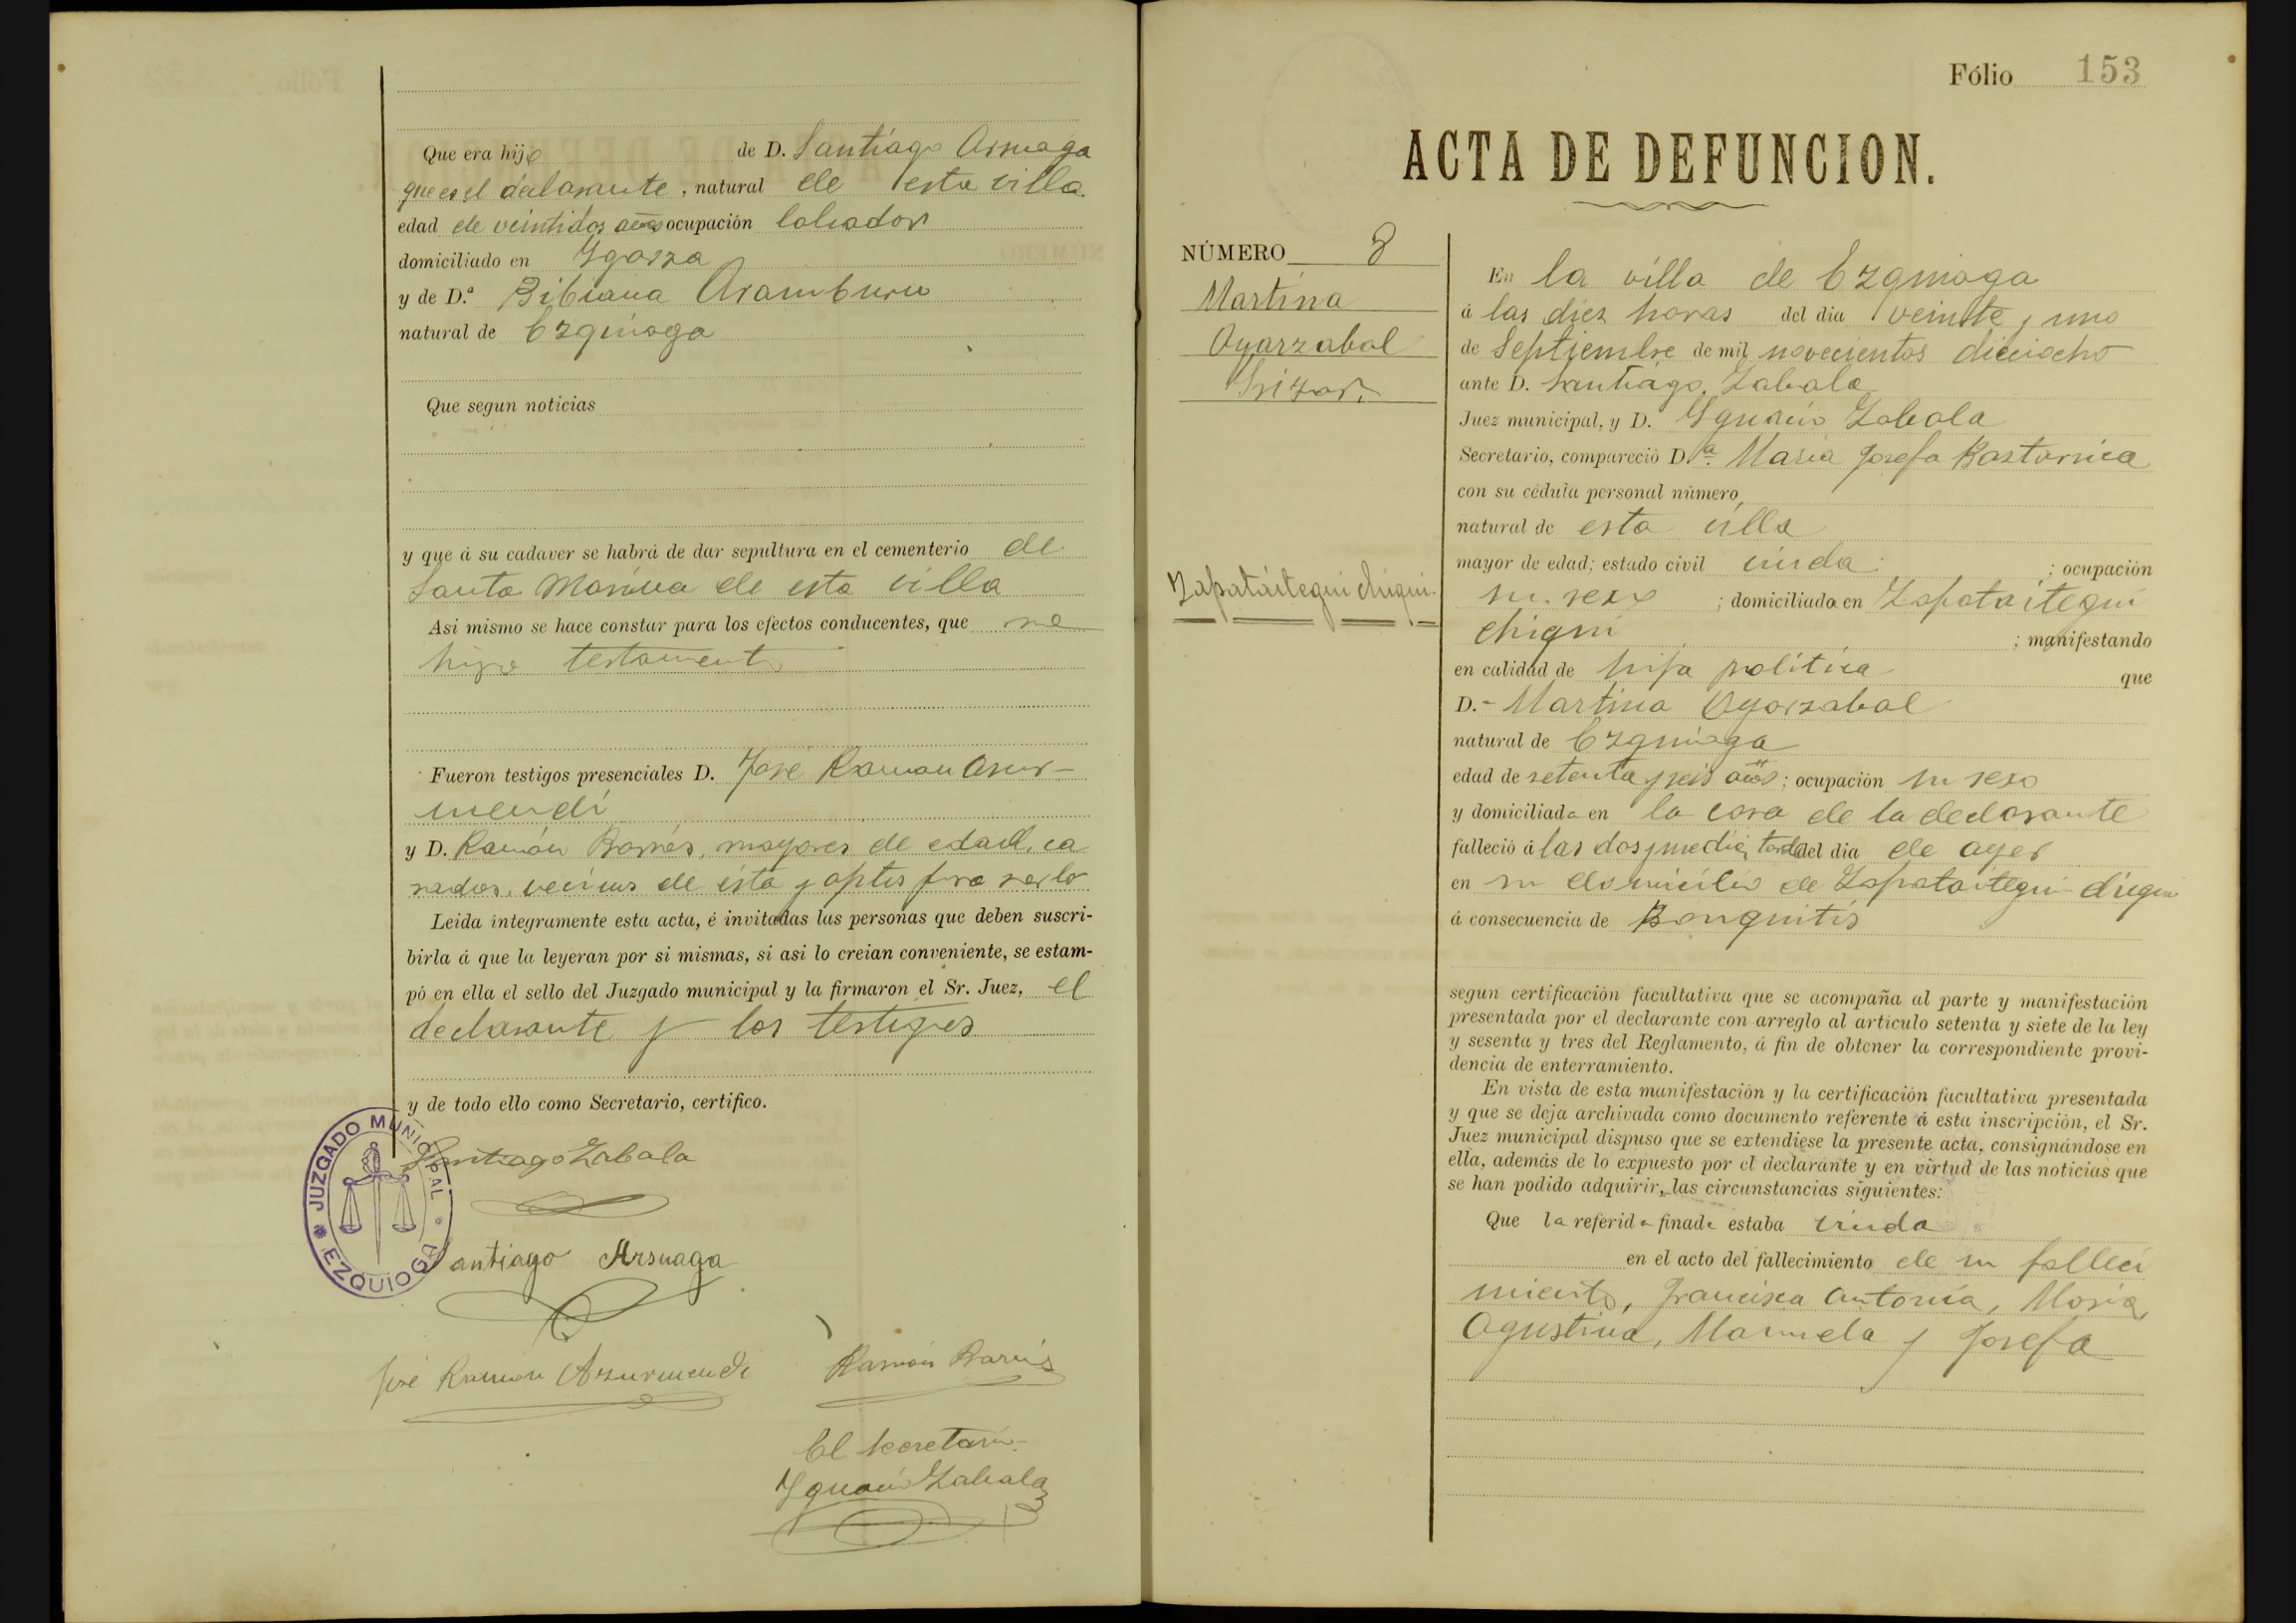 Que era hijo de D. Santiago Arsuaga
que es el declarante, natural de esta villa
edad de veintidos años ocupación labrador
domiciliado en Ygarza
y de D.ª Bibiana Aramburu
natural de Ezquioga
Que segun noticias
y que á su cadaver se habrá de dar sepultura en el cementerio de
Santa Marina de esta villa
Asi mismo se hace constar para los efectos conducentes, que no
hizo testamento
Fueron testigos presenciales D. José Ramon Azur-
mendi
y D. Ramón Barnés, mayores de edad, ca
sados, vecinos de ésta y aptos para serlo
Leida integramente esta acta, é invitadas las personas que deben suscri-
birla á que la leyeran por si mismas, si asi lo creian conveniente, se estam-
pó en ella el sello del Juzgado municipal y la firmaron el Sr. Juez, el
declarante y los testigos
y de todo ello como Secretario, certifico.
JUZGADO MUNICIPAL
EZQUIOGA
Santiago Zabala
Santiago Arsuaga
José Ramón Azurmendi
Ramón
El Secretario
Ygnacio Zabala
Fólio 153
ACTA DE DEFUNCION.
NÚMERO 8
Martina
Oyarzabal
Irizar.
Zapataitegui chiqui.
En la villa de Ezquioga
á las diez horas del dia veinte y uno
de Septiembre de mil novecientos dieciocho
ante D. Santiago Zabala
Juez municipal, y D. Ygnacio Zabala
Secretario, compareció D.ª Maria Josefa Bastarrica
con su cédula personal número
natural de esta villa
mayor de edad; estado civil viuda ; ocupación
su sexo ; domiciliada en Zapataitegui
chiqui ; manifestando
en calidad de hija politica que
D.- Martina Oyarzabal
natural de Ezquioga
edad de setenta y seis años; ocupación su sexo
y domiciliada en la casa de la declarante
falleció á las dos y media tarde del dia de ayer
en su domicilio de Zapataitegui chiqui
á consecuencia de Bronquitis
segun certificación facultativa que se acompaña al parte y manifestación
presentada por el declarante con arreglo al articulo setenta y siete de la ley
y sesenta y tres del Reglamento, á fin de obtener la correspondiente provi-
dencia de enterramiento.
En vista de esta manifestación y la certificación facultativa presentada
y que se deja archivada como documento referente á esta inscripción, el Sr.
Juez municipal dispuso que se extendiese la presente acta, consignándose en
ella, además de lo expuesto por el declarante y en virtud de las noticias que
se han podido adquirir, las circunstancias siguientes:
Que la referida finada estaba viuda
en el acto del fallecimiento de su falleci
miento, Francisca Antonia, Maria,
Agustina, Manuela y Josefa